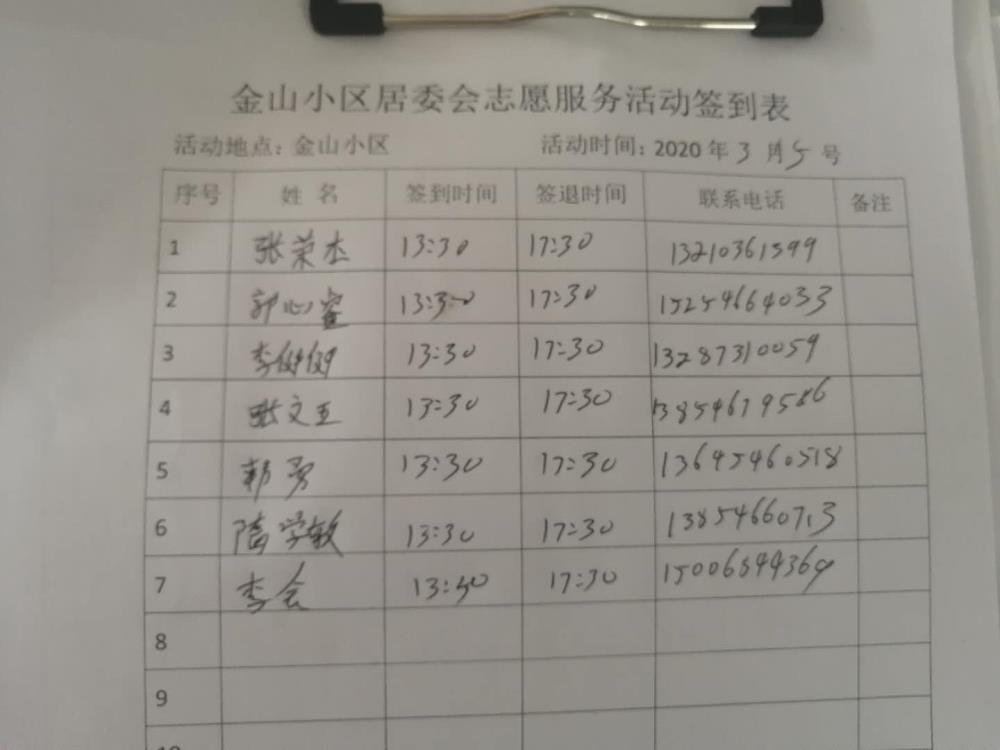 金山小区居委会志愿服务活动签到表
活动地点：金山小区 活动时间：2020年3月5号
序号 姓名 签到时间 签退时间 联系电话 备注
1 张荣杰 13:30 17:30 13210361599
2 郭心蜜 13:30 17:30 15254664033
3 李健健 13:30 17:30 13287310059
4 张文玉 13:30 17:30 13854679586
5 韩勇 13:30 17:30 13645460518
6 隋学敏 13:30 17:30 13854660713
7 李会 13:30 17:30
8
9
10